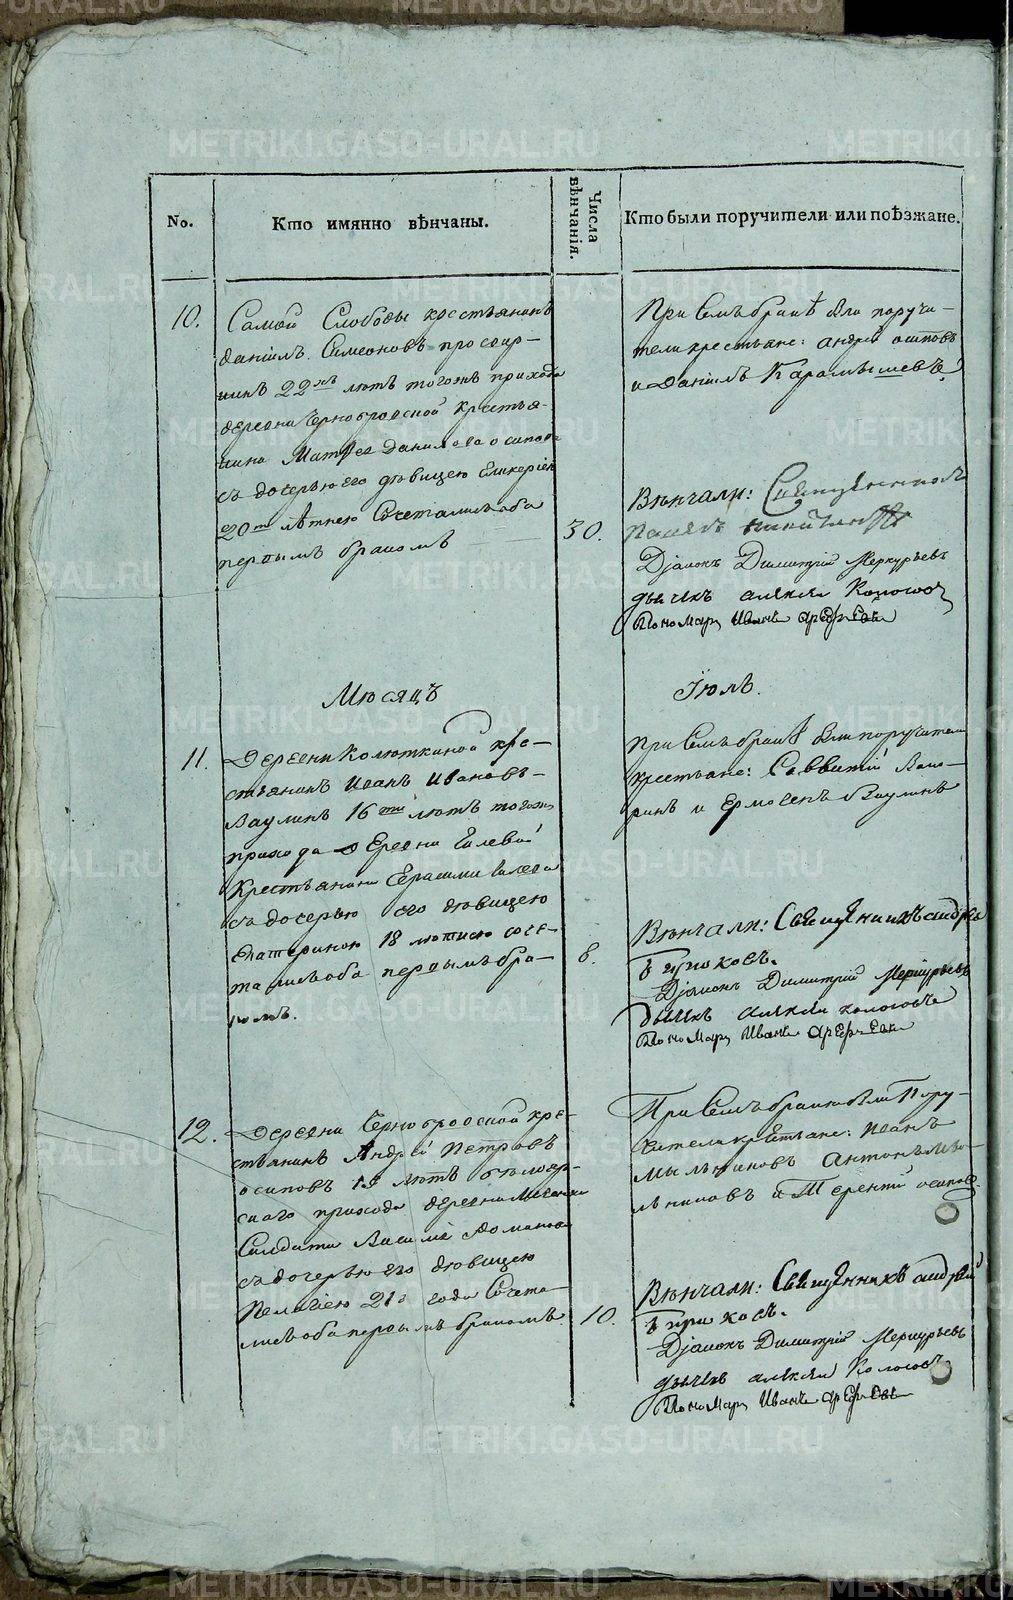 No.
Кто имянно вѣнчаны.
Числа вѣнчанія.
Кто были поручители или поѣзжане.
10.
Самой Слободы крестьянинъ
Даніилъ Симеоновъ просвир-
нинъ 22хъ лютъ тогожъ прихода
деревни Чернобровской Крестья-
нина Матвея Данилова осипова
съ дочерью его дѣвицею Гликеріею
20ти лѣтнею Сочетались оба
первымъ бракомъ
30.
При семъ бракѣ были поручи-
тели крестьяне: андрей осиповъ
и Даніилъ Карамышевъ
Вѣнчали: Священникъ
Діаконъ Димитрій Меркурьевъ
дьячекъ алексѣй Колосовъ
Пономарь Иванъ арефьевъ
Мюсяцъ
Іюль.
11.
Деревни Колюткиной кре-
стьянинъ Иванъ Ивановъ
Ваулинъ 16ти лютъ тогожъ
прихода деревни Гилевой
Крестьянина Герасима Гилева
съ дочерью его дювицею
Екатериною 18 лютнею соче-
тались оба первымъ бра-
комъ.
8.
При семъ бракѣ были поручители
крестьяне: Савватій
и Ермогенъ Ваулинъ
Вѣнчали: Священникъ андрей
Бирюковъ.
Діаконъ Димитрій Меркурьевъ
дьячекъ алексѣй колосовъ
Пономарь Иванъ арефьевъ
12.
Деревни Чернобровской кре-
стьянинъ Андрей Петровъ
осиповъ 19 лютъ бѣлояр-
скаго прихода деревни
Салдата Василія Романова
съ дочерью его дювицею
Пелагіею 21го года Сочета-
лись оба первымъ бракомъ
10.
При Семъ бракю были Пору-
чители крестьяне: Иванъ
мыльниковъ Антонъ мы-
льниковъ и Терентій осиповъ.
Вѣнчали: Священникъ андрей
Бирюковъ.
Діаконъ Димитрій Меркурьевъ
дьячекъ алексѣй Колосовъ
Пономарь Иванъ арефьевъ
METRIKI.GASO-URAL.RU